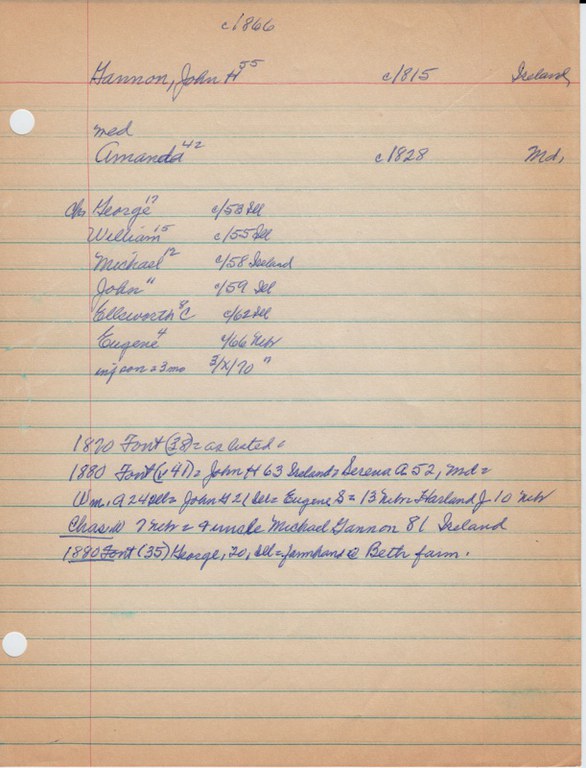 c1866
Gannon, John H 55 c/1815 Ireland
med
Amanda 42 c1828 Md,
Chs George 17 c/53 Ill
William 15 c/55 Ill
Michael 12 c/58 Ireland
John 11 c/59 Ill
Ellsworth 8 C c/62 Ill
Eugene 4 c/66 Nebr
inf son = 3mo 3/x/70 "
1870 Font (38) = as listed =
1880 Font (v41) = John H 63 Ireland = Serena A 52, Md =
Wm. A 24 Ill = John H 21 Ill = Eugene S = 13 Nebr = Harland J 10 Nebr
Chas W 7 Nebr = Michael Gannon 81 Ireland
1880 Font (35) George, 20, Ill = farmhand @ Beth farm.